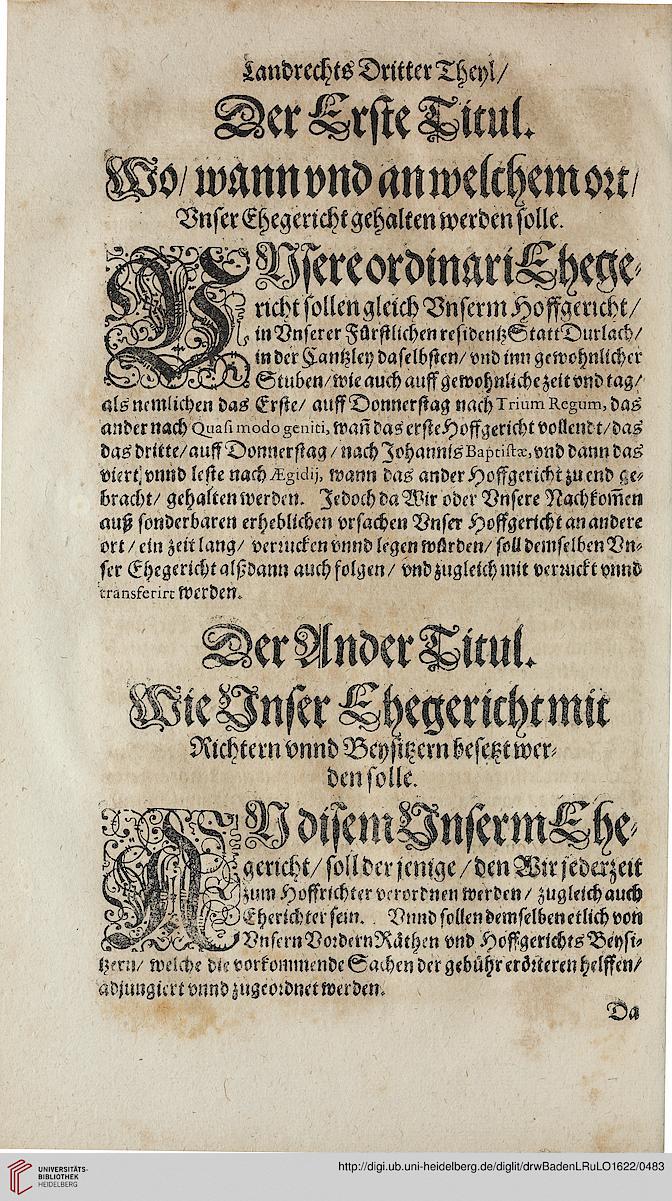 Landrechts Dritter Theyl/
Der Erste Titul.
Wo/ wann vnd an welchem ort/
Vnser Ehegericht gehalten werden solle.
VNsere ordinari Ehege-
richt sollen gleich Vnserm Hoffgericht/
in Vnserer Fürstlichen residentz Statt Durlach/
in der Cantzley daselbsten/ vnd inn gewohnlicher
Stuben/ wie auch auff gewohnliche zeit vnd tag/
als nemlichen das Erste/ auff Donnerstag nach Trium Regum, das
ander nach Quasi modo geniti, wañ das erste Hoffgericht vollendt/ das
das dritte/ auff Donnerstag/ nach Johannis Baptistæ, vnd dann das
viert/ vnnd leste nach Ægidij, wann das ander Hoffgericht zu end ge-
bracht/ gehalten werden. Jedoch da Wir oder Vnsere Nachkom̃en
auß sonderbaren erheblichen vrsachen Vnser Hoffgericht an andere
ort/ ein zeit lang/ verrucken vnnd legen würden/ soll demselben Vn-
ser Ehegericht alßdann auch folgen/ vnd zugleich mit verruckt vnnd
transferirt werden.
Der Ander Titul.
Wie Vnser Ehegericht mit
Richtern vnnd Beysitzern besetzt wer-
den solle.
AN disem Vnserm Ehe-
gericht/ soll der jenige/ den Wir jederzeit
zum Hoffrichter verordnen werden/ zugleich auch
Eherichter sein. Vnnd sollen demselben etlich von
Vnsern Vordern Räthen vnd Hoffgerichts Beysi-
tzern/ welche die vorkommende Sachen der gebühr erörteren helffen/
adjungiert vnnd zugeordnet werden.
Da
UNIVERSITÄTS-
BIBLIOTHEK
HEIDELBERG
http://digi.ub.uni-heidelberg.de/diglit/drwBadenLRuLO1622/0483